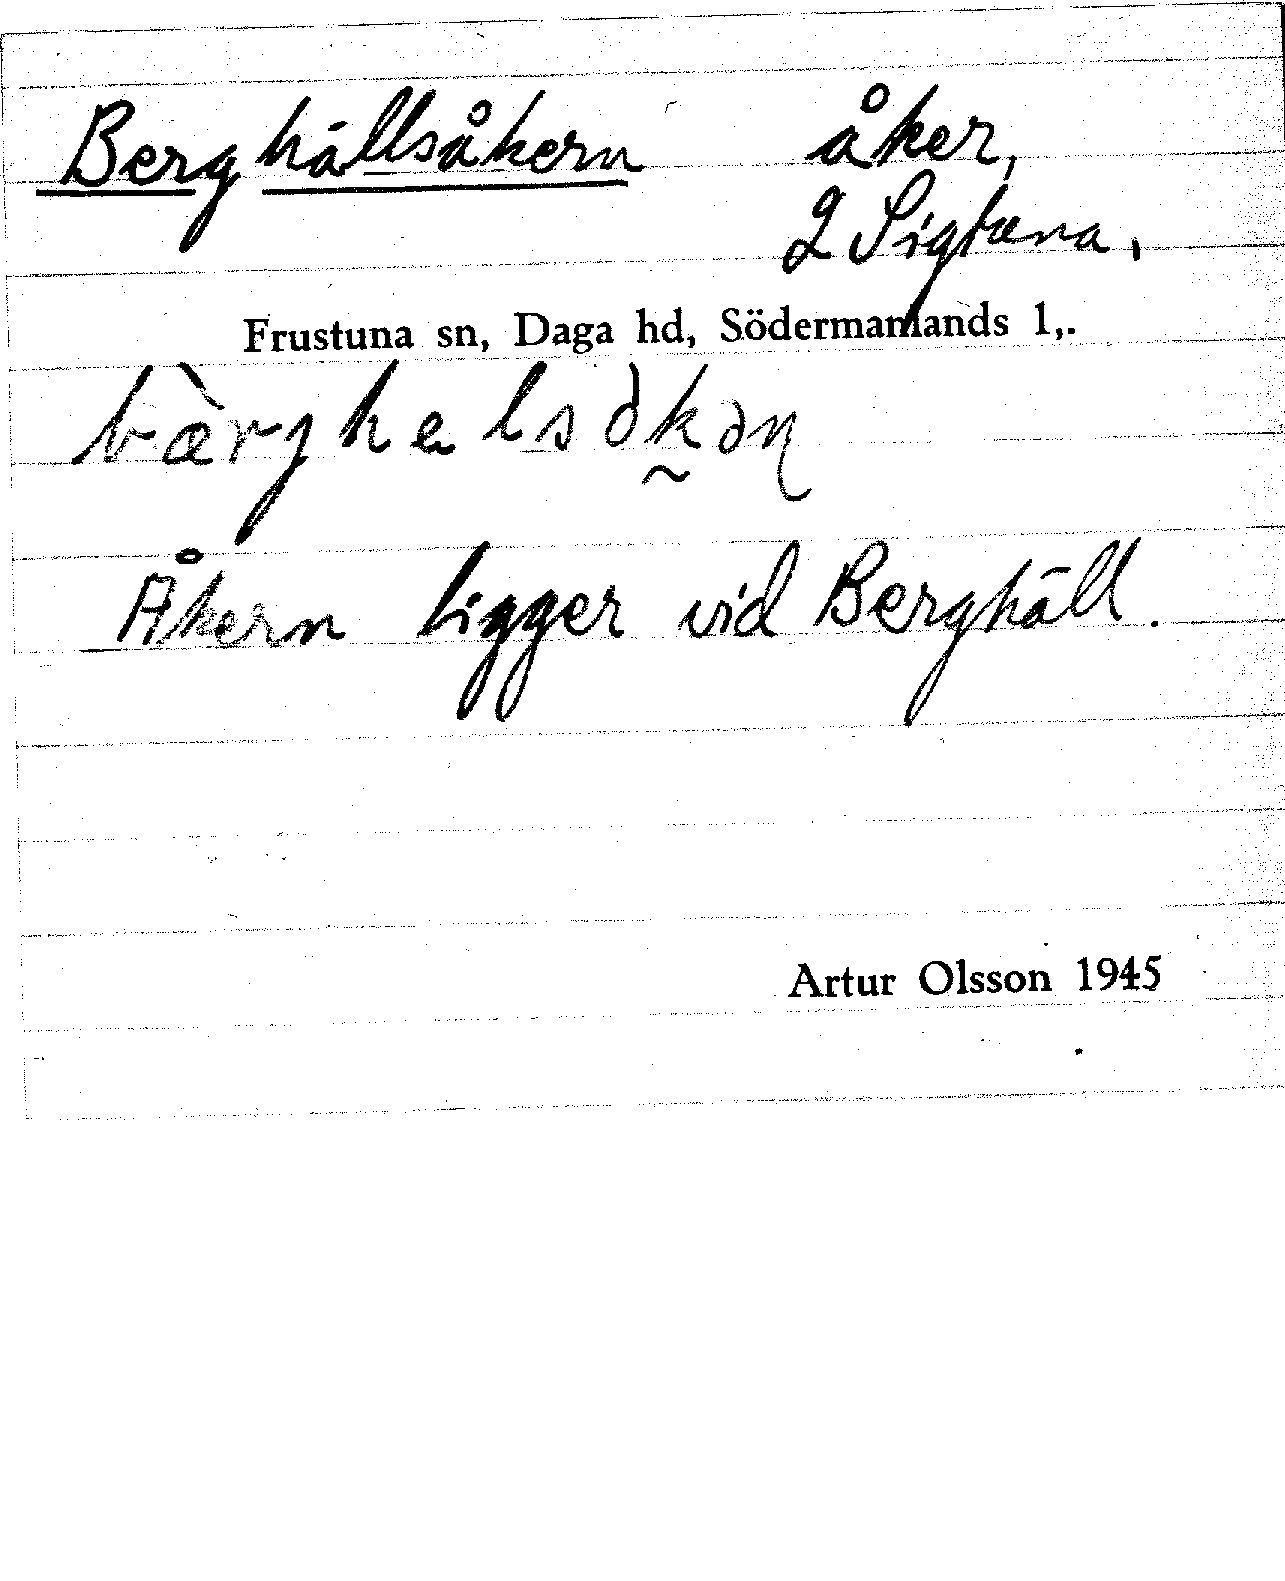 Berghällsåkern åker,
2 Sigtuna,
Frustuna sn, Daga hd, Södermanlands l,.
Åkern ligger vid Berghäll.
Artur Olsson 1945